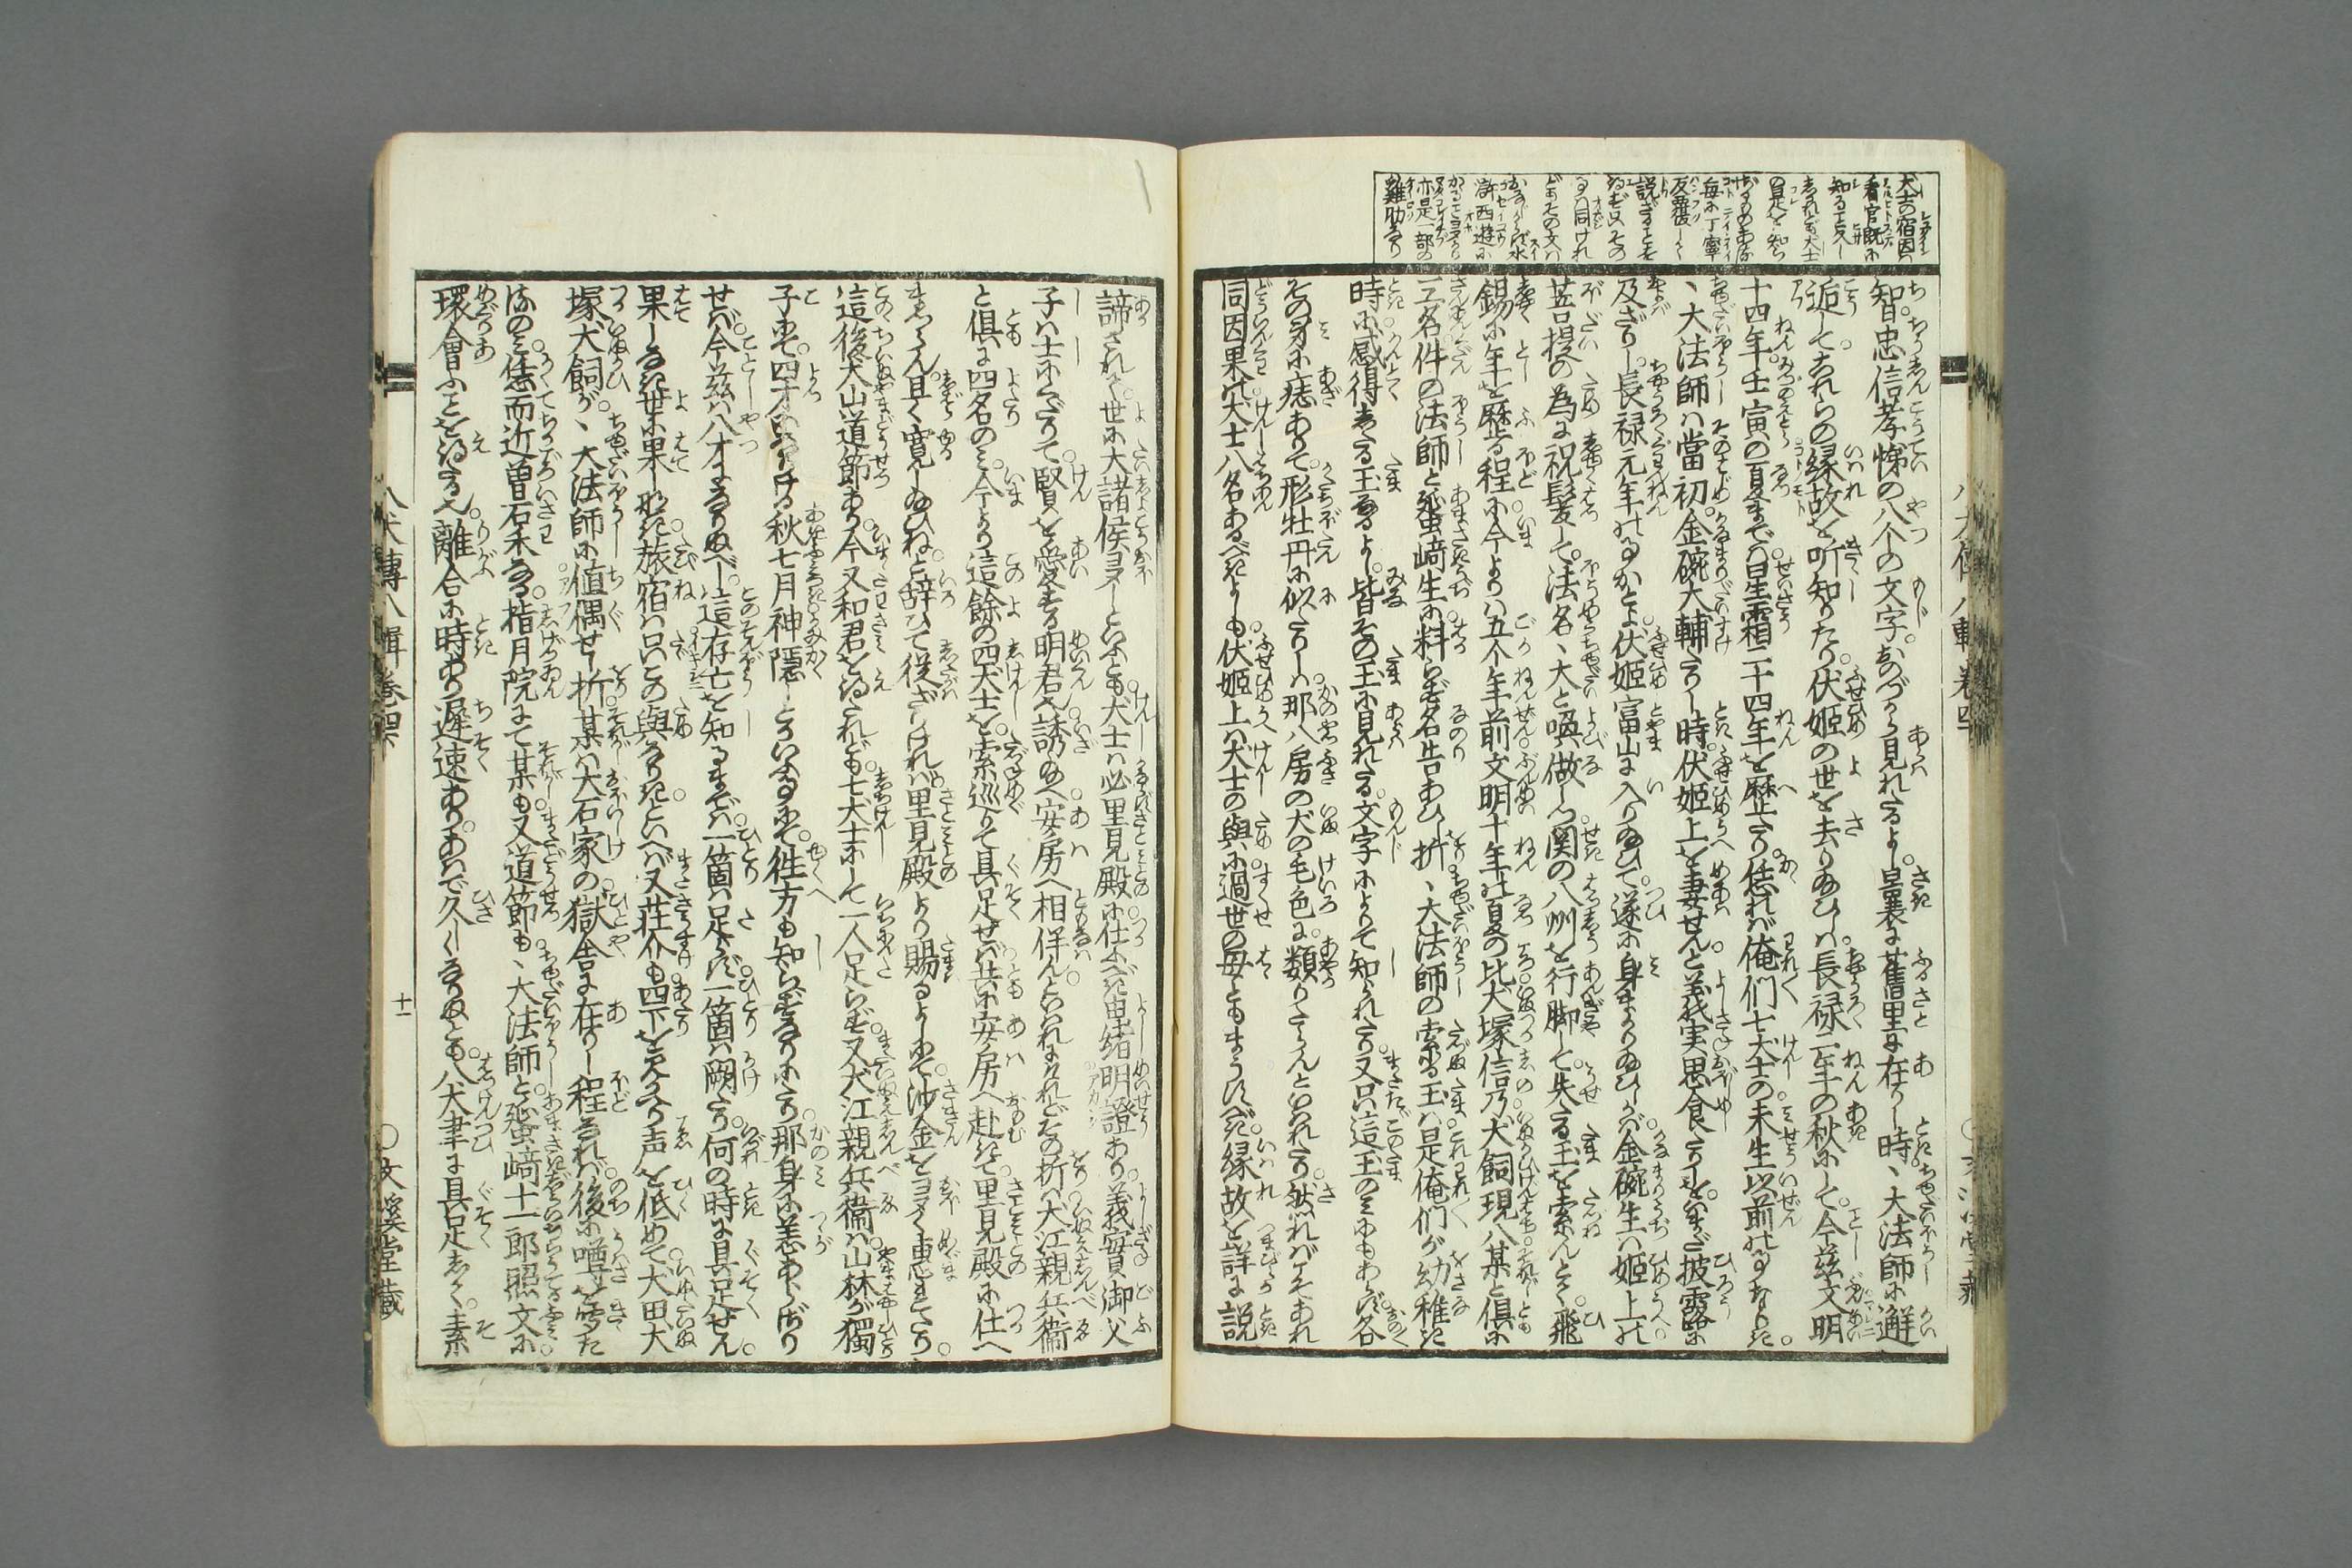 犬士の宿因ハ
看官既に
知ること久し
されども犬士
の是を知ら
毎に丁寧
反覆して
説ざることを
得ず又その
るハ同けれ
どもその文ハ
おなじからず水
滸西遊に
かゝることヨクあり
亦是一部の
難助なり
智。忠信孝悌の八个の文字。おのづから見れたるよし。曩に舊里に在りし時。、大法師に邂
逅してこれらの縁故を听知りたり。伏姫の世を去り給ひしハ。長禄二年の秋にして。今茲文明
十四年。壬寅の夏まで。星霜二十四年を歴たり。恁れバ俺们七犬士の。未生以前の事なりき。
、大法師ハ當初。金碗大輔たりし時。伏姫上を妻せんと。義実思食たりしを。いまだ披露に
及ざりし。長禄元年の事かとよ。伏姫富山に入り給ひて。遂に身まかり給ひしが。金碗生ハ姫上の。
菩提の為に祝髪して。法名、大と喚做しつ。関の八州を行脚して。失たる玉を索んとて。飛
錫に年を歴る程に。今よりハ五个年前。文明十年の夏の比。犬塚信乃。犬飼現八。某と倶に
三名。件の法師と蜑﨑生に。料らず名告あひし折。、大法師の索る玉ハ。是俺们が幼稚き
時に。感得したる玉なるよし。皆その玉に見れたる。文字によりて知られたり。又只這玉のみにもあらず。各
その身に痣ありて。形牡丹に似たりしハ。那八房の犬の毛色に。類りたらんといはれたり。然れバぞあれ
同因果の。犬士八名あるべきよしも。伏姫上ハ犬士の與に。過世の母ともまうすべき。縁故を詳に説
八犬傳八輯巻四
諦されて。世に大諸侯ヨクしといふとも。犬士ハ必里見殿に。仕ふべき由緒明證あり。義實御父
子ハ士にくだりて。賢を愛する明君也。誘給へ安房へ相伴んといはれにけれど。その折ハ犬江親兵衞
と倶に四名のミ。今より這餘の四犬士を。索巡りて具足せバ。共に安房へ赴きて。里見殿に仕へ
まつらん。且く寛し給ひねと。辞ひて従ざりけれバ。里見殿より賜るよしにて。沙金をヨク惠れたり。
這後犬山道節あり。今又和君を得たれども。七犬士にして一人足らず。又犬江親兵衞ハ。山林が獨
子にて。四才なりける秋七月。神隱しとかいふ事にて。徃方も知らずなりにたり。那身に恙あらずあり
せバ。今茲ハ八才になりぬべし。這存亡を知るまでハ。一箇ハ足らず。一箇ハ闕たり。何の時に具足せん。
果しなき世に果しなき。旅宿ハ只この與なりきといへバ。又荘介も四下を見かへり。声を低めて。犬田犬
塚犬飼が。、大法師に値偶せし折。某ハ大石家の。獄舎に在りし程なれバ。後に噂を聞た
るのミ。恁而近曽石禾なる。指月院にて某も。又道節も。、大法師と。蜑﨑十一郎照文に。
環會ふことを得たる也。離合に時あり。遲速あり。あハで久しくなりぬとも。八犬聿に具足して。素
八犬傳八輯巻四
十一
〇文溪堂藏